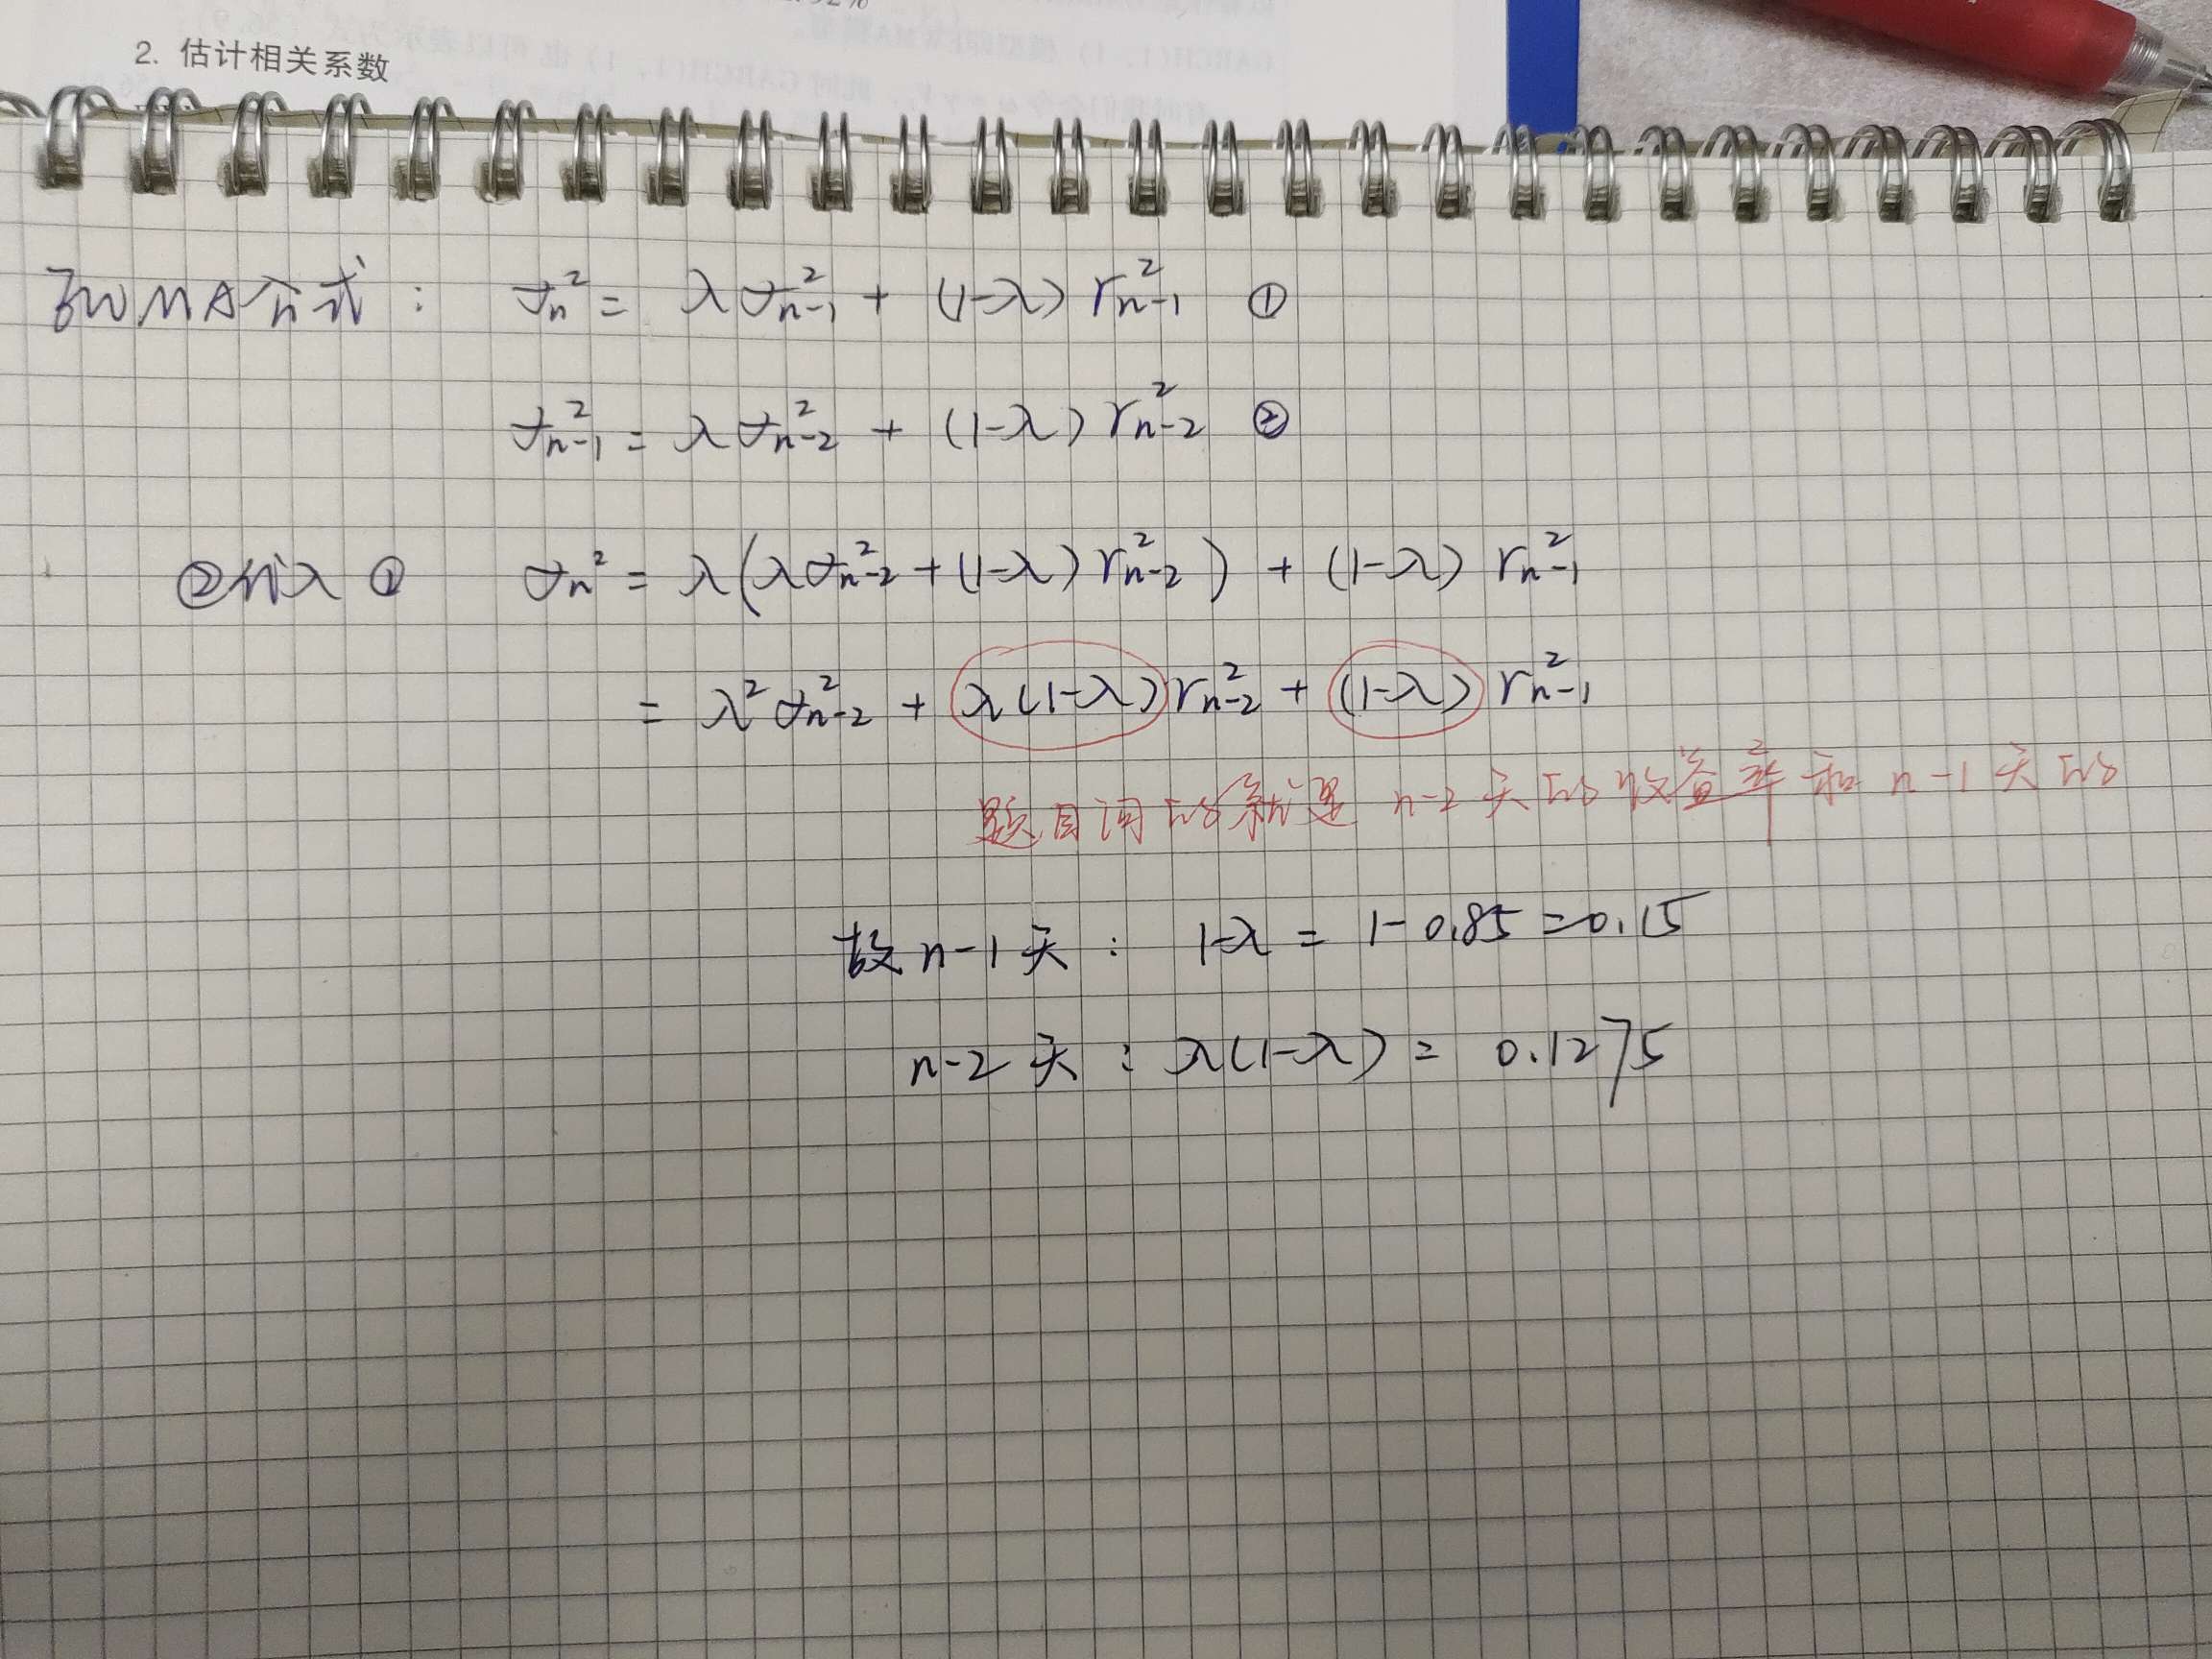 2. 估计相关系数
EWMA公式: σn² = λσn-1² + (1-λ) rn-1² ①
σn-1² = λσn-2² + (1-λ) rn-2² ②
②代入① σn² = λ(λσn-2² + (1-λ) rn-2²) + (1-λ) rn-1²
= λ²σn-2² + λ(1-λ) rn-2² + (1-λ) rn-1²
题目问的就是 n-2 天的收益率和 n-1 天的
故 n-1 天: 1-λ = 1-0.85 = 0.15
n-2 天: λ(1-λ) = 0.1275